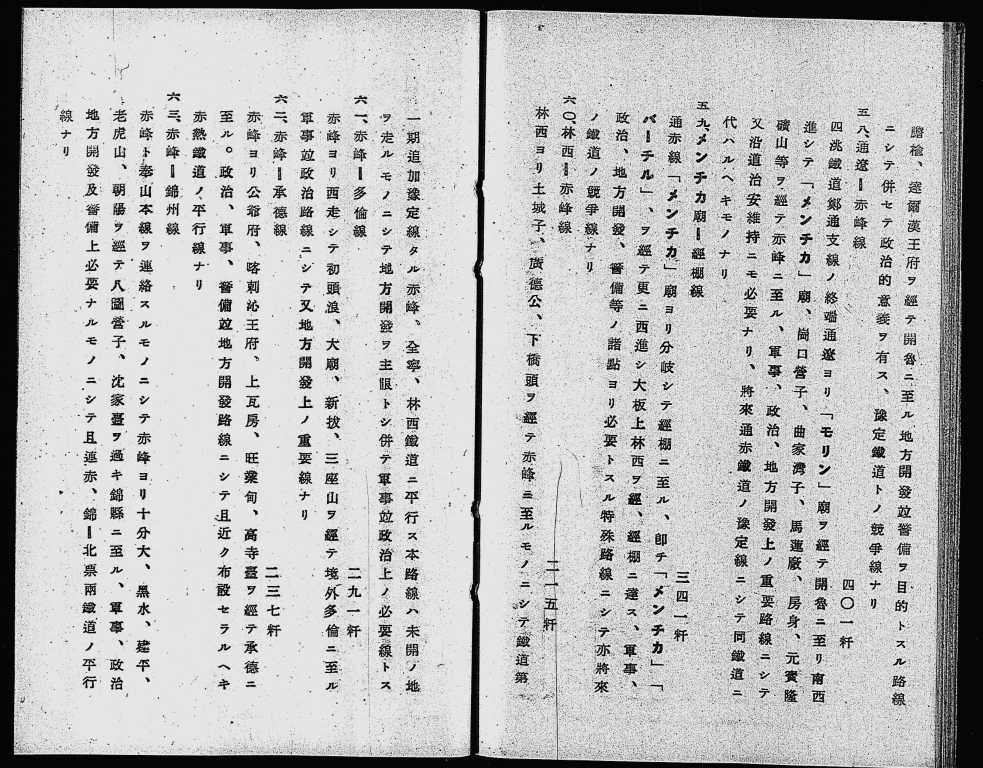 膽楡、遼爾漢王府ヲ經テ開魯ニ至ル地方開發竝警備ヲ目的トスル路線
ニシテ併セテ政治的意義ヲ有ス、豫定鐵道トノ競爭線ナリ
五八、通遼=赤峰線　四〇一粁
四洮鐵道鄭通支線ノ終端通遼ヨリ「モリン」廟ヲ經テ開魯ニ至リ南西
進シテ「メンチカ」廟、崗口營子、曲家灣子、馬蓮廠、房身、元寳隆
礦山等ヲ經テ赤峰ニ至ル、軍事、政治、地方開發上ノ重要路線ニシテ
又沿道治安維持ニモ必要ナリ、將來通赤鐵道ノ豫定線ニシテ同鐵道ニ
代ハルヘキモノナリ
五九、メンチカ廟=經棚線　三四一粁
通赤線「メンチカ」廟ヨリ分岐シテ經棚ニ至ル、卽チ「メンチカ」「
バーチル」、ヲ經テ更ニ西進シ大板上林西ヲ經、經棚ニ達ス、軍事、
政治、地方開發、警備等ノ諸點ヨリ必要トスル特殊路線ニシテ亦將來
ノ鐵道ノ競爭線ナリ
六〇、林西=赤峰線　二一五粁
林西ヨリ土城子、廣德公、下橋頭ヲ經テ赤峰ニ至ルモノニシテ鐵道第
一期追加豫定線タル赤峰、全寧、林西鐵道ニ平行ス本路線ハ未開ノ地
ヲ走ルモノニシテ地方開發ヲ主眼トシ併テ軍事竝政治上ノ必要線トス
六一、赤峰=多倫線　二九一粁
赤峰ヨリ西走シテ初頭浪、大廟、新拔、三座山ヲ經テ境外多倫ニ至ル
軍事竝政治路線ニシテ又地方開發上ノ重要線ナリ
六二、赤峰=承德線　二三七粁
赤峰ヨリ公爺府、喀剌沁王府、上瓦房、旺業甸、高寺臺ヲ經テ承德ニ
至ル。政治、軍事、警備竝地方開發路線ニシテ且近ク布設セラルヘキ
赤熱鐵道ノ平行線ナリ
六三、赤峰=錦州線
赤峰ト奉山本線ヲ連絡スルモノニシテ赤峰ヨリ十分大、黑水、建平、
老虎山、朝陽ヲ經テ八圖營子、沈家臺ヲ過キ錦縣ニ至ル、軍事、政治
地方開發及警備上必要ナルモノニシテ且連赤、錦=北票兩鐵道ノ平行
線ナリ